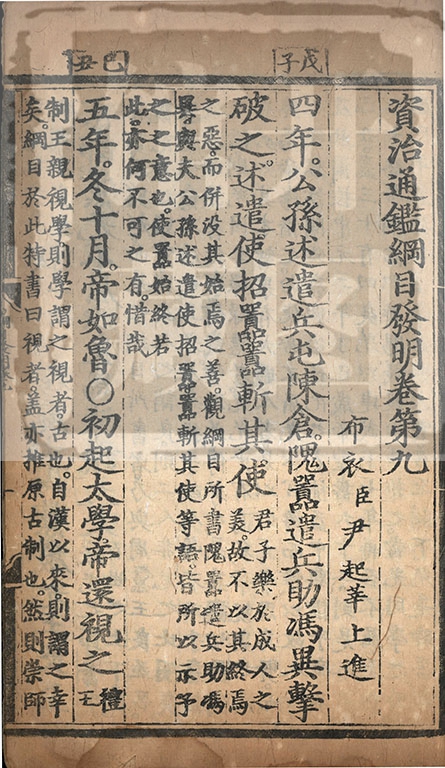 戊子
資治通鑑綱目發明卷第九
布衣臣尹起莘上進
四年。公孫述遣兵屯陳倉。隗囂遣兵助馮異擊
破之。述遣使招囂囂斬其使
君子樂於成人之
美。故不以其終焉
之惡。而併没其始焉之善。觀綱目所書隗囂遣兵助馮
異。與夫公孫述遣使招囂囂斬其使等語。皆所以示予
之之意也。使囂始終若
此。亦何不可之有。惜哉
己丑
五年。冬十月。帝如魯○初起太學。帝還視之
禮
王
制王親視學。則學謂之視者。古也。自漢以來。則謂之幸
矣。綱目於此特書曰視者。蓋亦推原古制也。然則崇師